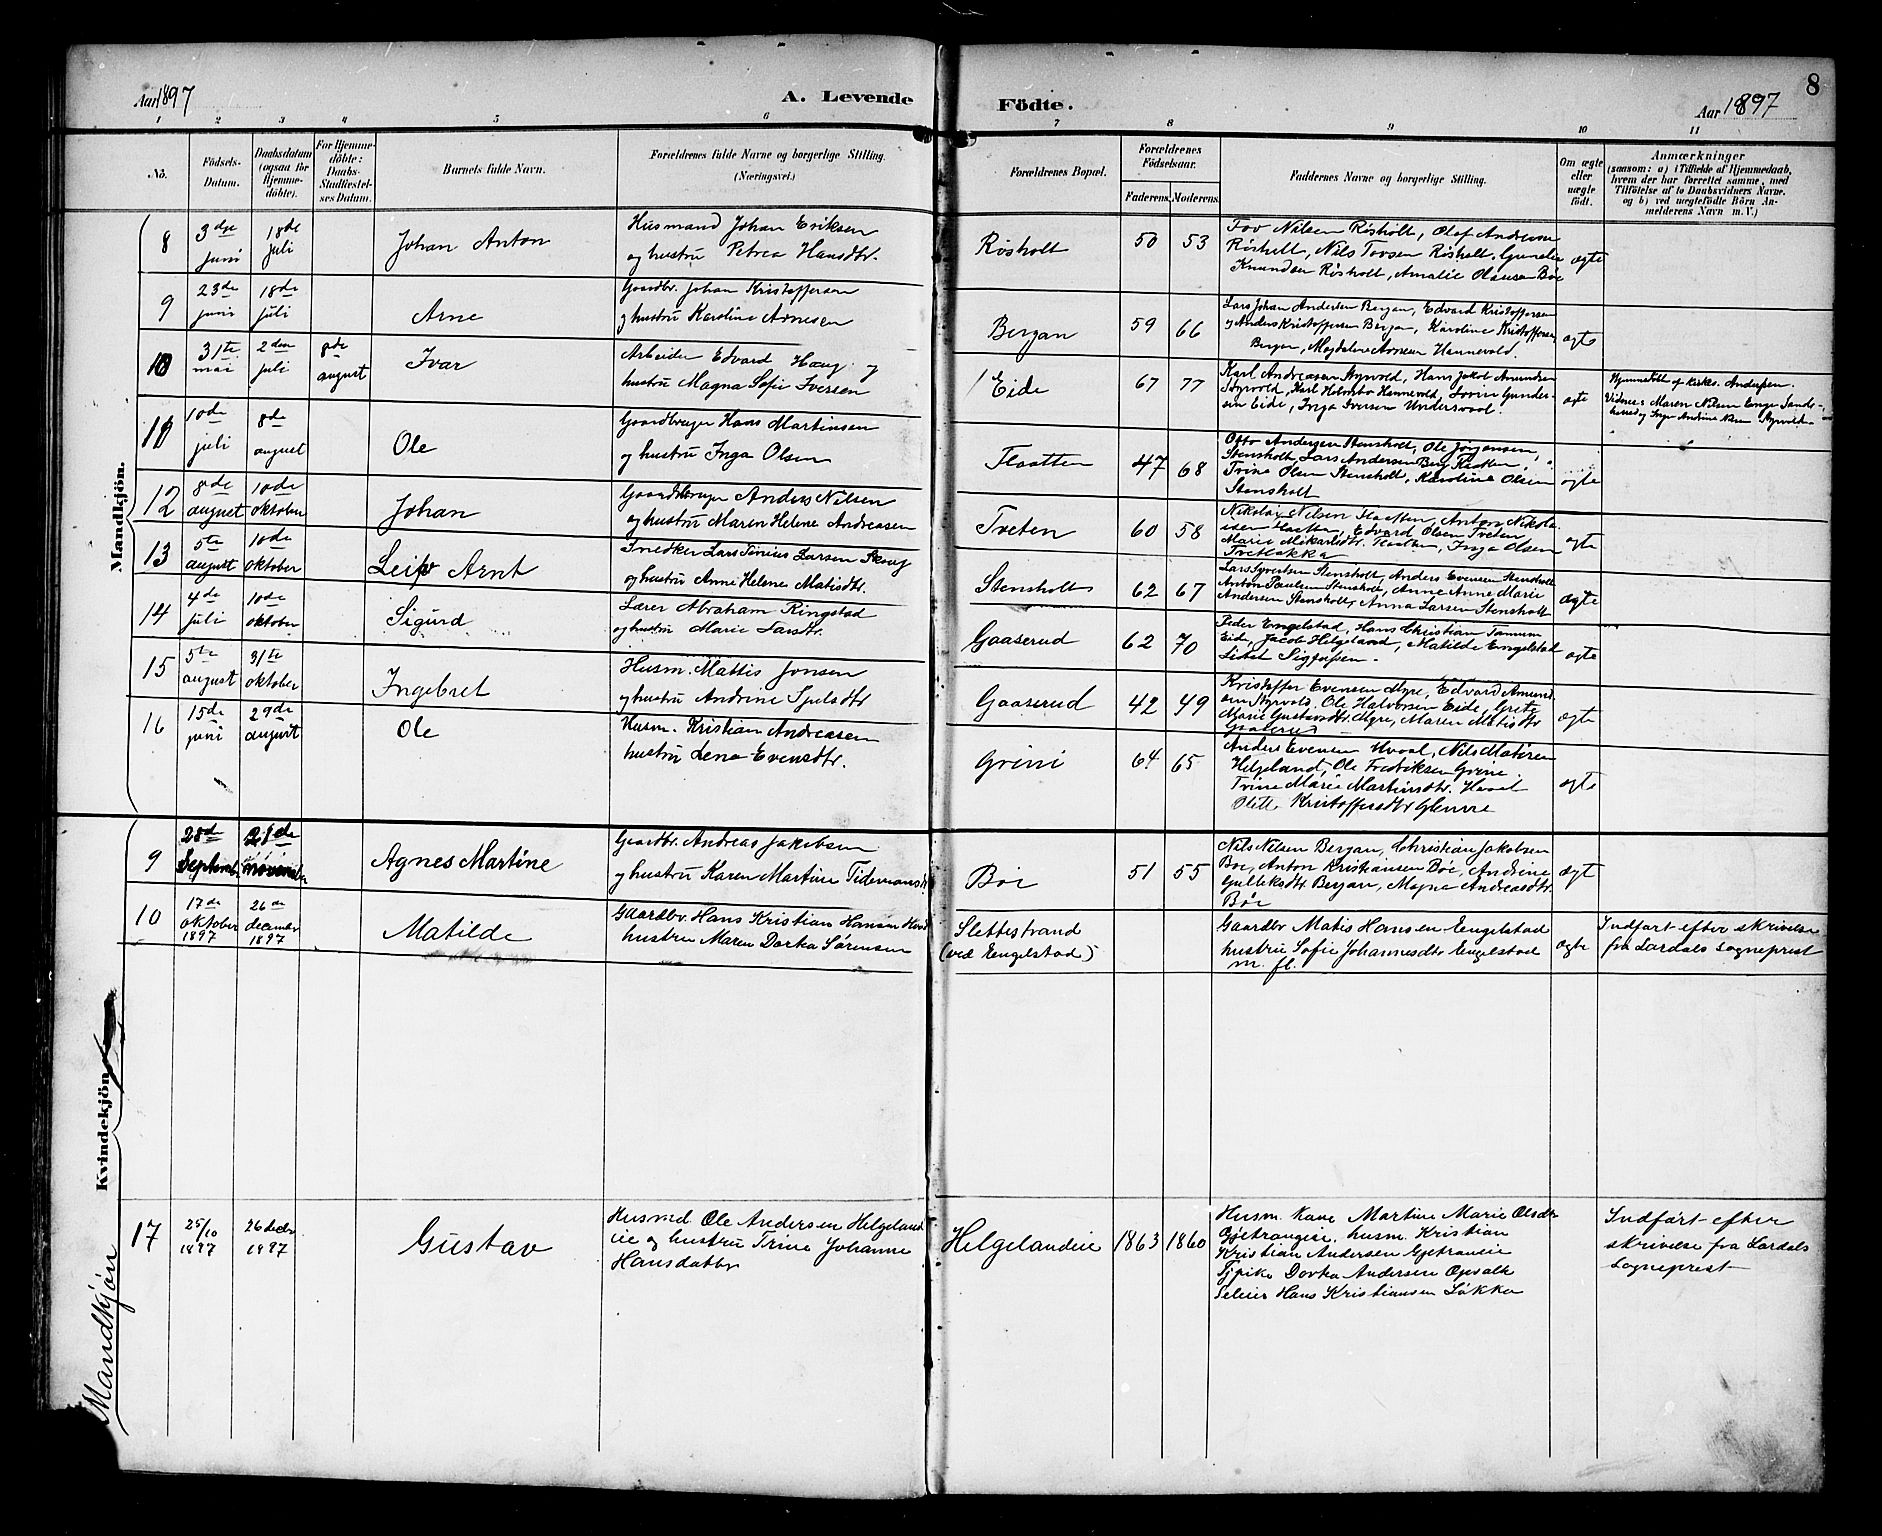 Aar 1897
A. Levende
Födte.
Aar 1897
8
1 2 3 4 5 6 7 8 9 10 11
No.
Födsels-
Datum.
Daabsdatum
(ogsaa for
Hjemme-
döbte).
For Hjemme-
döbte:
Daabs-
Stadfæstel-
ses Datum.
Barnets fulde Navn.
Forældrenes fulde Navne og borgerlige Stilling.
(Næringsvei.)
Forældrenes Bopæl.
Forældrenes
Födselsaar.
Faderens. Moderens.
Faddernes Navne og borgerlige Stilling.
Om ægte
eller
uægte
født.
Anmærkninger
(saasom: a) i Tilfælde af Hjemmedaab,
hvem der har forrettet samme, med
Tilföielse af to Daabsvidners Navne,
og b) ved uægtefödte Börn An-
melderens Navn m. V.)
Mandkjön.
8
3die juni
18de juli
Johan Anton
Husmand Johan Eriksen
og hustru Petrea Hansdtr.
Røsholt
50 53
Tov Nilsen Røsholt, Olaf Andersen
Røsholt, Nils Tovsen Røsholt, Gunelie
Knudsen Røsholt, Amalie Olausen Bøe
ægte
9
23de juni
18de juli
Arne
Gaardbr. Johan Kristoffersen
og hustru Karoline Arnesen
Bergan
59 66
Lars Johan Andersen Bergan, Edvard Kristoffersen
og Anders Kristoffersen Bergan, Karoline Kristoffersen
Bergan, Magdalene Arnesen Hannevold.
ægte
10
31te mai
2den juli
8de august
Ivar
Arbeider Edvard Haug og
hustru Magna Sofie Iversen
Eide
67 77
Karl Andreasen Styrvold, Hans Jakob Amundsen
Styrvold, Karl Holmbo Hannevold, Lovise Gunder-
sen Eide, Inga Iversen Undersvaal.
ægte
Hjemmedøbt af kirkes. Anderssen.
Vidner: Maren Nilsen Enge Sande-
herred og Inge Andrine Næss Styrvold
11
10de juli
8de august
Ole
Gaardbruger Hans Martinsen
og hustru Inga Olsen
Flaatten
47 68
Otto Andersen Stensholt, Ole Jörgensen,
Stensholt, Lars Andersen Berg Flatten,
Trine Olsen Stensholt, Karoline Olsen
Stensholt
ægte
12
8de august
10de oktober
Johan
Gaardbruger Anders Nilsen
og hustru Maren Helene Andreasen
Tveten
60 58
Nikolai Nilsen Flaatten, Anton Nikola-
isen Flaatten, Edvard Olsen Tveten
Marie Mikarlsdtr. Flaatten, Inga Olsen
Tvetbakka
ægte
13
5te august
10de oktober
Leif Arnt
Snedker Lars Tinius Larsen Skoug
og hustru Anne Helene Matisdtr.
Stensholt
62 67
Lars Syvertsen Stensholt, Anders Evensen Stensholt
Anton Paulsen Stensholt, Anne Anne Marie
Andersen Stensholt, Anna Larsen Stensholt
ægte
14
4de juli
10de oktober
Sigurd
Lærer Abraham Ringstad
og hustru Marie Larsdtr.
Gaaserud
62 70
Peder Engelstad, Hans Christian Tamum
Eid, Jacob Helgeland, Matilde Engelstad
ægte
15
5te august
31te oktober
Ingebret
Husm. Mattis Jonsen
og hustru Andrine Sjulsdtr.
Gaaserud
42 49
Kristoffer Evensen Myre, Edvard Amund-
sen Styrvold, Ole Halvorsen Eide, Grete
Marie Gustavsdtr. Myre, Maren Matisdtr
Gaaserud
ægte
16
15de juni
29de august
Ole
Husm. Kristian Andreasen
hustru Lena Evensdtr.
Grini
64 65
Anders Evensen Hvaal, Nils Matisen
Helgeland, Ole Fredriksen Grine.
Trine Marie Martinsdtr. Hvaal
Olette Kristoffersdtr Glenne
ægte
Kvindekjön
9
28de Septemb.
21de november
Agnes Martine
Gaardbr. Andreas Jakobsen
og hustru Karen Martine Tidemansd.
Bøe
51 55
Nils Nilsen Bergan, Christian Jakobsen
Bøe, Anton Kristiansen Bøe, Andrine
Gulleksdtr Bergan, Magna Andreasdtr.
Bøe
ægt
10
17de oktober 1897
26de december 1897
Matilde
Gaardbr. Hans Kristian Hansen
hustru Maren Dorka Sørensen
Slettestrand
(ved Engelstad)
Gaardbr Matis Hansen Engelstad
hustru Sofie Johannesdtr Engelstad
m. fl.
ægte
Indført efter skrivelse
fra Lardals sogneprest
Mandkjøn
17
25/10 1897
26 decbr 1897
Gustav
Husmd. Ole Andersen Helgeland-
eie og hustru Trine Johanne
Hansdatter
Helgelandeie
1863 1860
Husm. Kone Martine Marie Olsdr
Gjetrangeie, husm. Kristian
Kristian Andersen Gjetraneie
Tj.pike Dorka Andersen Opvalk
Seleier Hans Kristiansen Løkka
Indført efter
skrivelse fra Lardals
Sogneprest